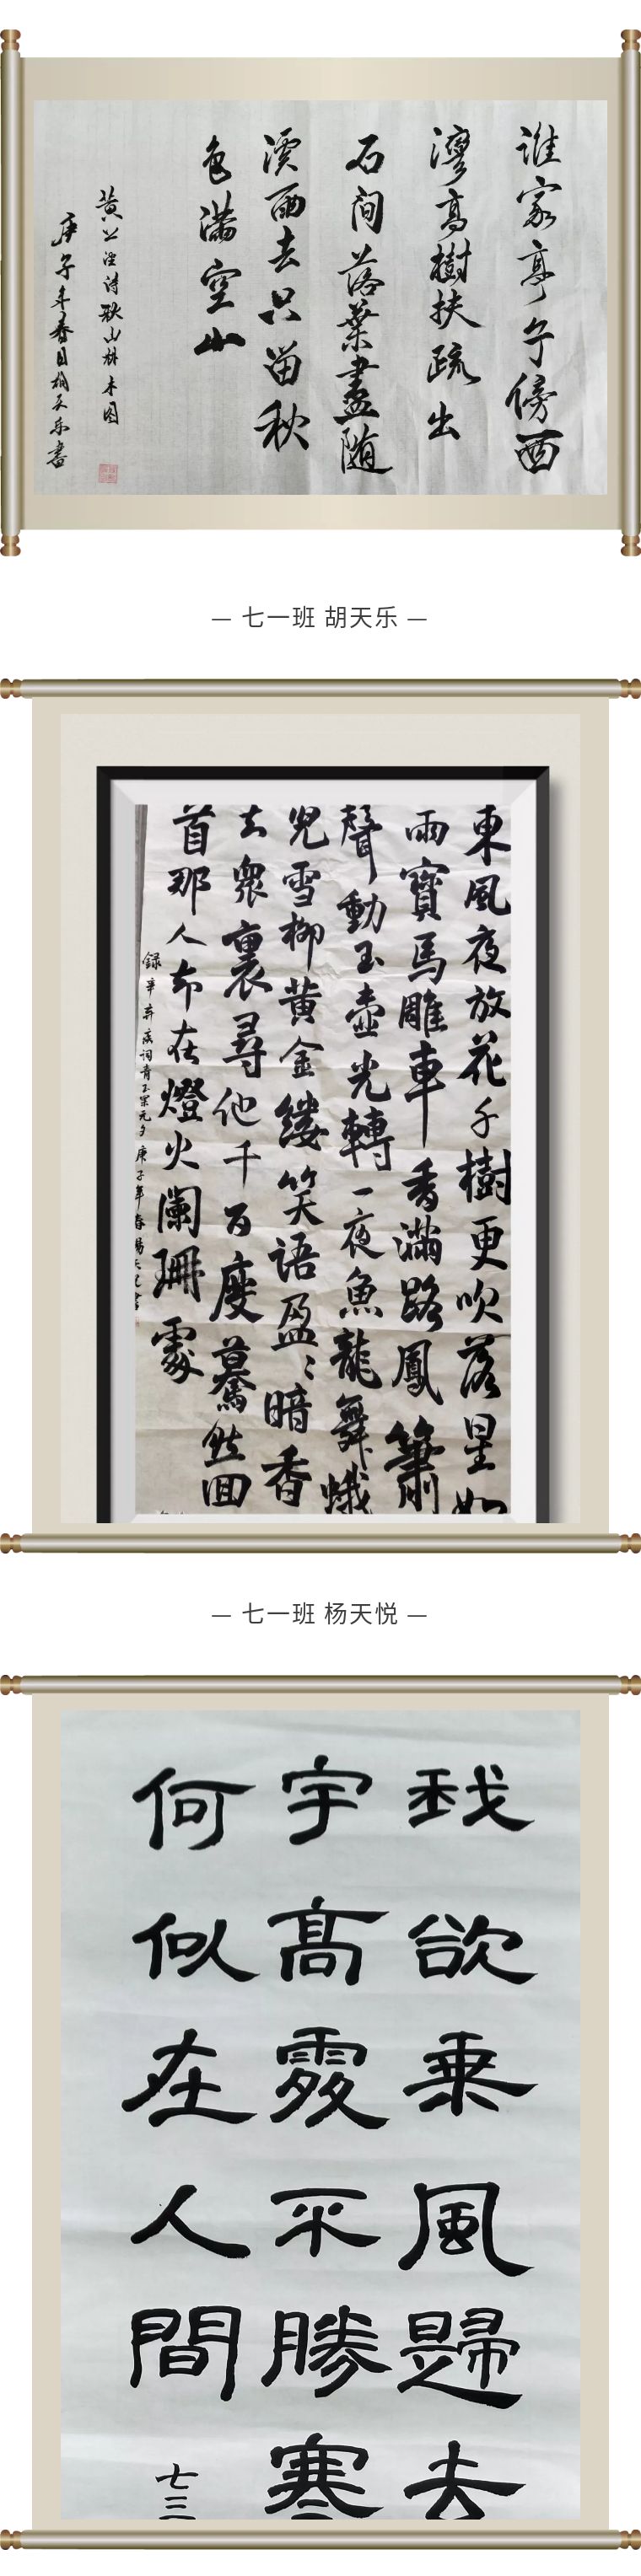 谁家亭午傍酉
湾高樹扶疏出
石间落葉盡随
溪雨去只留秋
色满空山
黄公望诗秋山林木图
庚子年春日胡天乐書
— 七一班 胡天乐 —
東風夜放花千樹更吹落星如
雨寶馬雕車香滿路鳳簫
聲動玉壺光轉一夜魚龍舞蛾
兒雪柳黄金缕笑语盈〻暗香
去衆裏尋他千百度驀然回
首那人却在燈火闌珊處
録辛弃疾词青玉案元夕庚子年春杨天悦書
— 七一班 杨天悦 —
我欲乗風歸去
宇髙處不勝寒
何似在人間
七三